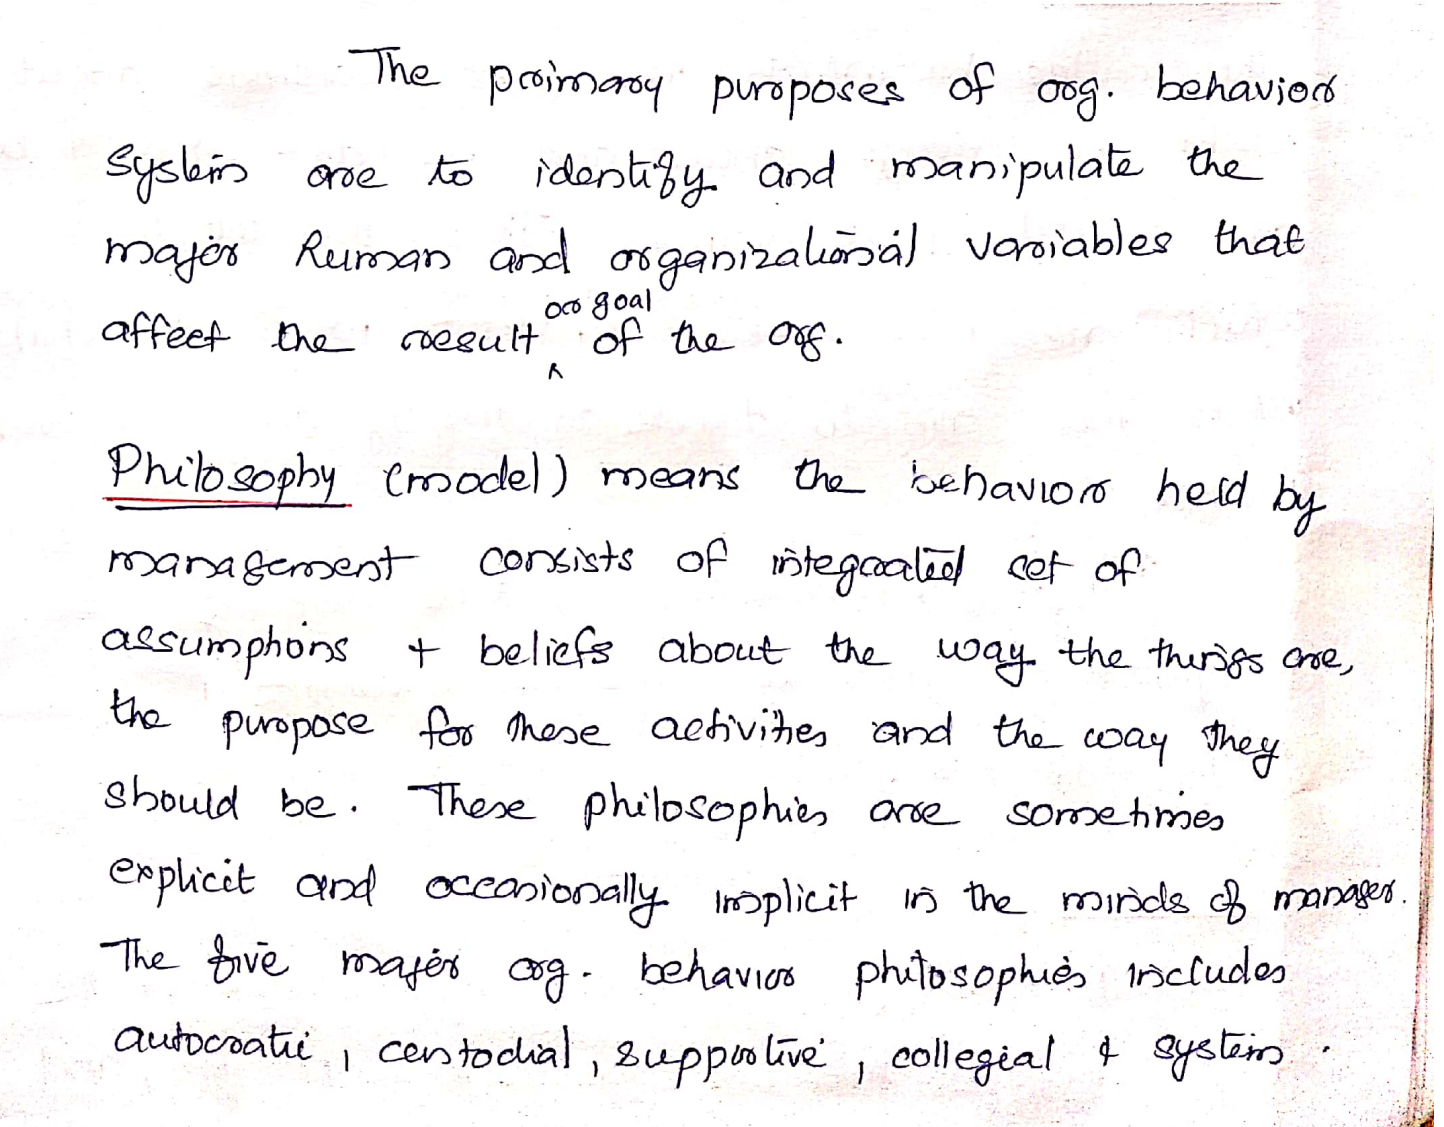 The primary purposes of org. behavior
system are to identify and manipulate the
major human and organizational variables that
affect the result or goal of the org.
Philosophy (model) means the behavior held by
management consists of integrated set of
assumptions + beliefs about the way the things are,
the purpose for these activities and the way they
should be. These philosophies are sometimes
explicit and occasionally implicit in the minds of manager.
The five major org. behavior philosophies includes
autocratic, custodial, supportive, collegial & system.